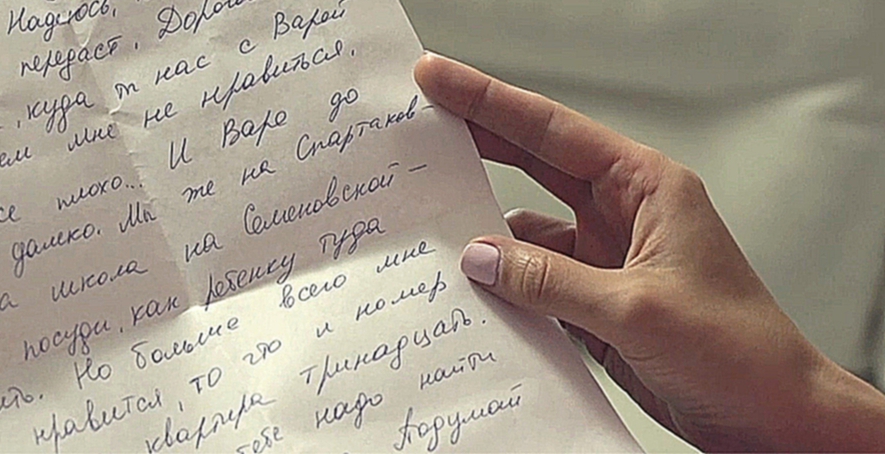 Надеюсь,
передаст. Дорого
, куда ты нас с Варей
ем мне не нравиться.
се плохо... И Варе до
далеко. Мы же на Спартаков-
а школа на Семеновской —
посуди, как ребенку туда
ить. Но больше всего мне
нравится, то что и номер
квартира тринадцать.
тебе надо найти
Подумай